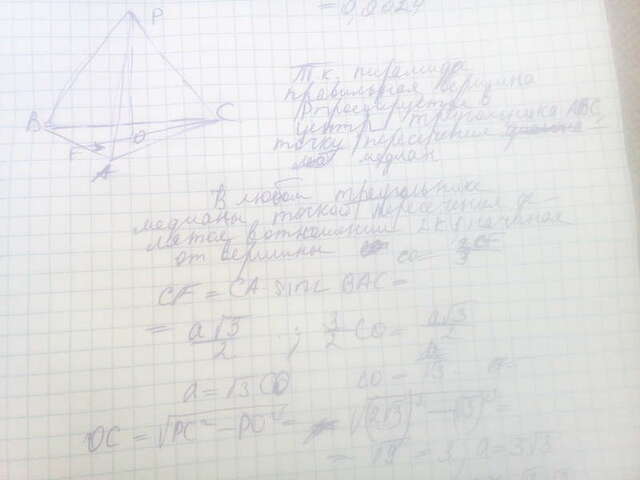 = 0,0024
P
B
C
O
F
A
Т.к. пирамида
правильная вершина
P проецируется в
центр треугольника ABC,
точку пересечения
медиан
В любом треугольнике
медианы точкой пересечения де-
лятся в отношении 2 к 1, начиная
от вершины CO =
CF = CA sin∠BAC =
= a√3/2 ; 3/2 CO = a√3/2
a = √3 CO CO = a/√3
OC = √PC² – PO² = √(2√3)² – (√3)² =
= √9 = 3, a = 3√3